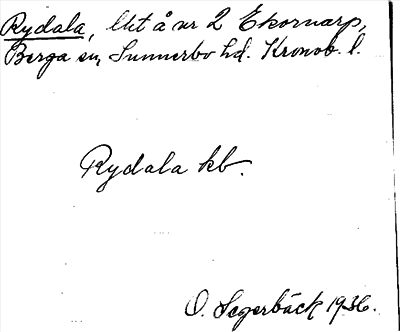 Rydala, lht å nr 2 Ekornarp,
Berga sn, Sunnerbo hd. Kronob. l.
Rydala kb.
O. Segerbäck 1936.